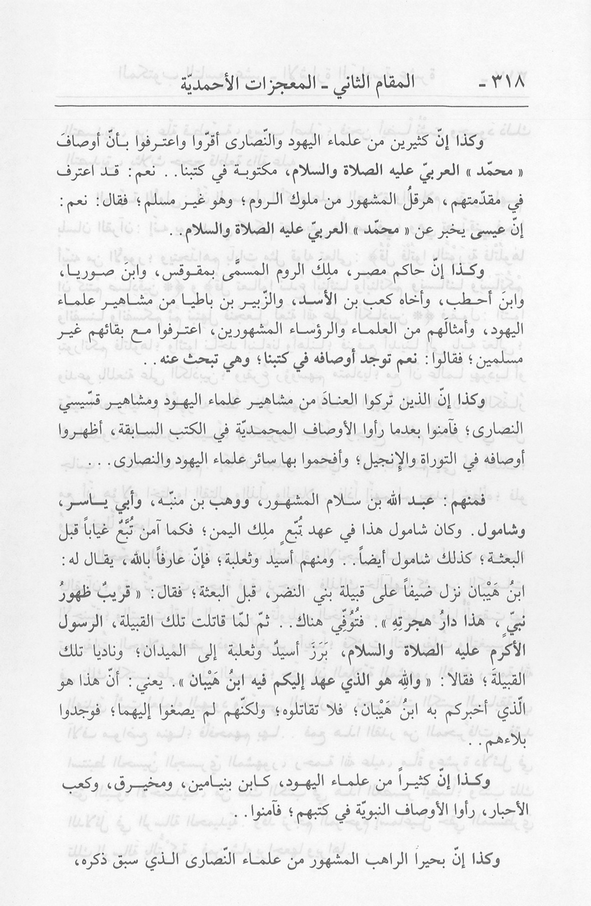 ٣١٨ - المقام الثاني - المعجزات الأحمديّة
وكذا إنّ كثيرين من علماء اليهود والنّصارى أقرّوا واعترفوا بأنّ أوصافَ
« محمّد » العربيّ عليه الصلاة والسلام، مكتوبة في كتبنا.. نعم: قد اعترف
في مقدّمتهم، هرقلُ المشهور من ملوك الروم؛ وهو غير مسلم؛ فقال: نعم:
إنّ عيسى يخبر عن « محمّد » العربيّ عليه الصلاة والسلام..
وكذا إنّ حاكم مصر، ملِكَ الروم المسمَّى بمقوقس، وابنَ صوريا،
وابنَ أحطب، وأخاه كعب بن الأسد، والزّبير بن باطيا من مشاهير علماء
اليهود، وأمثالَهم من العلماء والرؤساء المشهورين، اعترفوا مع بقائهم غير
مسلمين؛ فقالوا: نعم توجد أوصافه في كتبنا؛ وهي تبحث عنه..
وكذا إنّ الذين تركوا العنادَ من مشاهير علماء اليهود ومشاهير قسّيسي
النصارى؛ فآمنوا بعدما رأوا الأوصاف المحمديّة في الكتب السابقة، أظهروا
أوصافه في التوراة والإنجيل؛ وأفحموا بها سائر علماء اليهود والنصارى...
فمنهم: عبد الله بن سلام المشهور، ووهب بن منبّه، وأبي ياسر،
وشامول. وكان شامول هذا في عهد تُبّع ملِك اليمن؛ فكما آمن تُبَّعٌ غياباً قبل
البعثة؛ كذلك شامول أيضاً.. ومنهم أسيد وثعلبة؛ فإنّ عارفاً بالله، يقال له:
ابنُ هَيْبان نزل ضيفاً على قبيلة بني النضر، قبل البعثة؛ فقال: « قريبٌ ظهورُ
نبيّ، هذا دارُ هجرتِهِ ». فتُوُفّي هناك.. ثمّ لمّا قاتلت تلك القبيلة، الرسول
الأكرم عليه الصلاة والسلام، بَرَزَ أسيدٌ وثعلبة إلى الميدان؛ وناديا تلك
القبيلة؛ فقالا: « والله هو الذي عهد إليكم فيه ابنُ هَيْبان ». يعني: أنّ هذا هو
الّذي أخبركم به ابنُ هَيْبان؛ فلا تقاتلوه؛ ولكنّهم لم يصغوا إليهما؛ فوجدوا
بلاءهم..
وكذا إنّ كثيراً من علماء اليهود، كـابن بنيامين، ومخيرق، وكعب
الأحبار، رأوا الأوصاف النبويّة في كتبهم؛ فآمنوا..
وكذا إنّ بحيرا الراهب المشهور من علماء النّصارى الذي سبق ذكره،